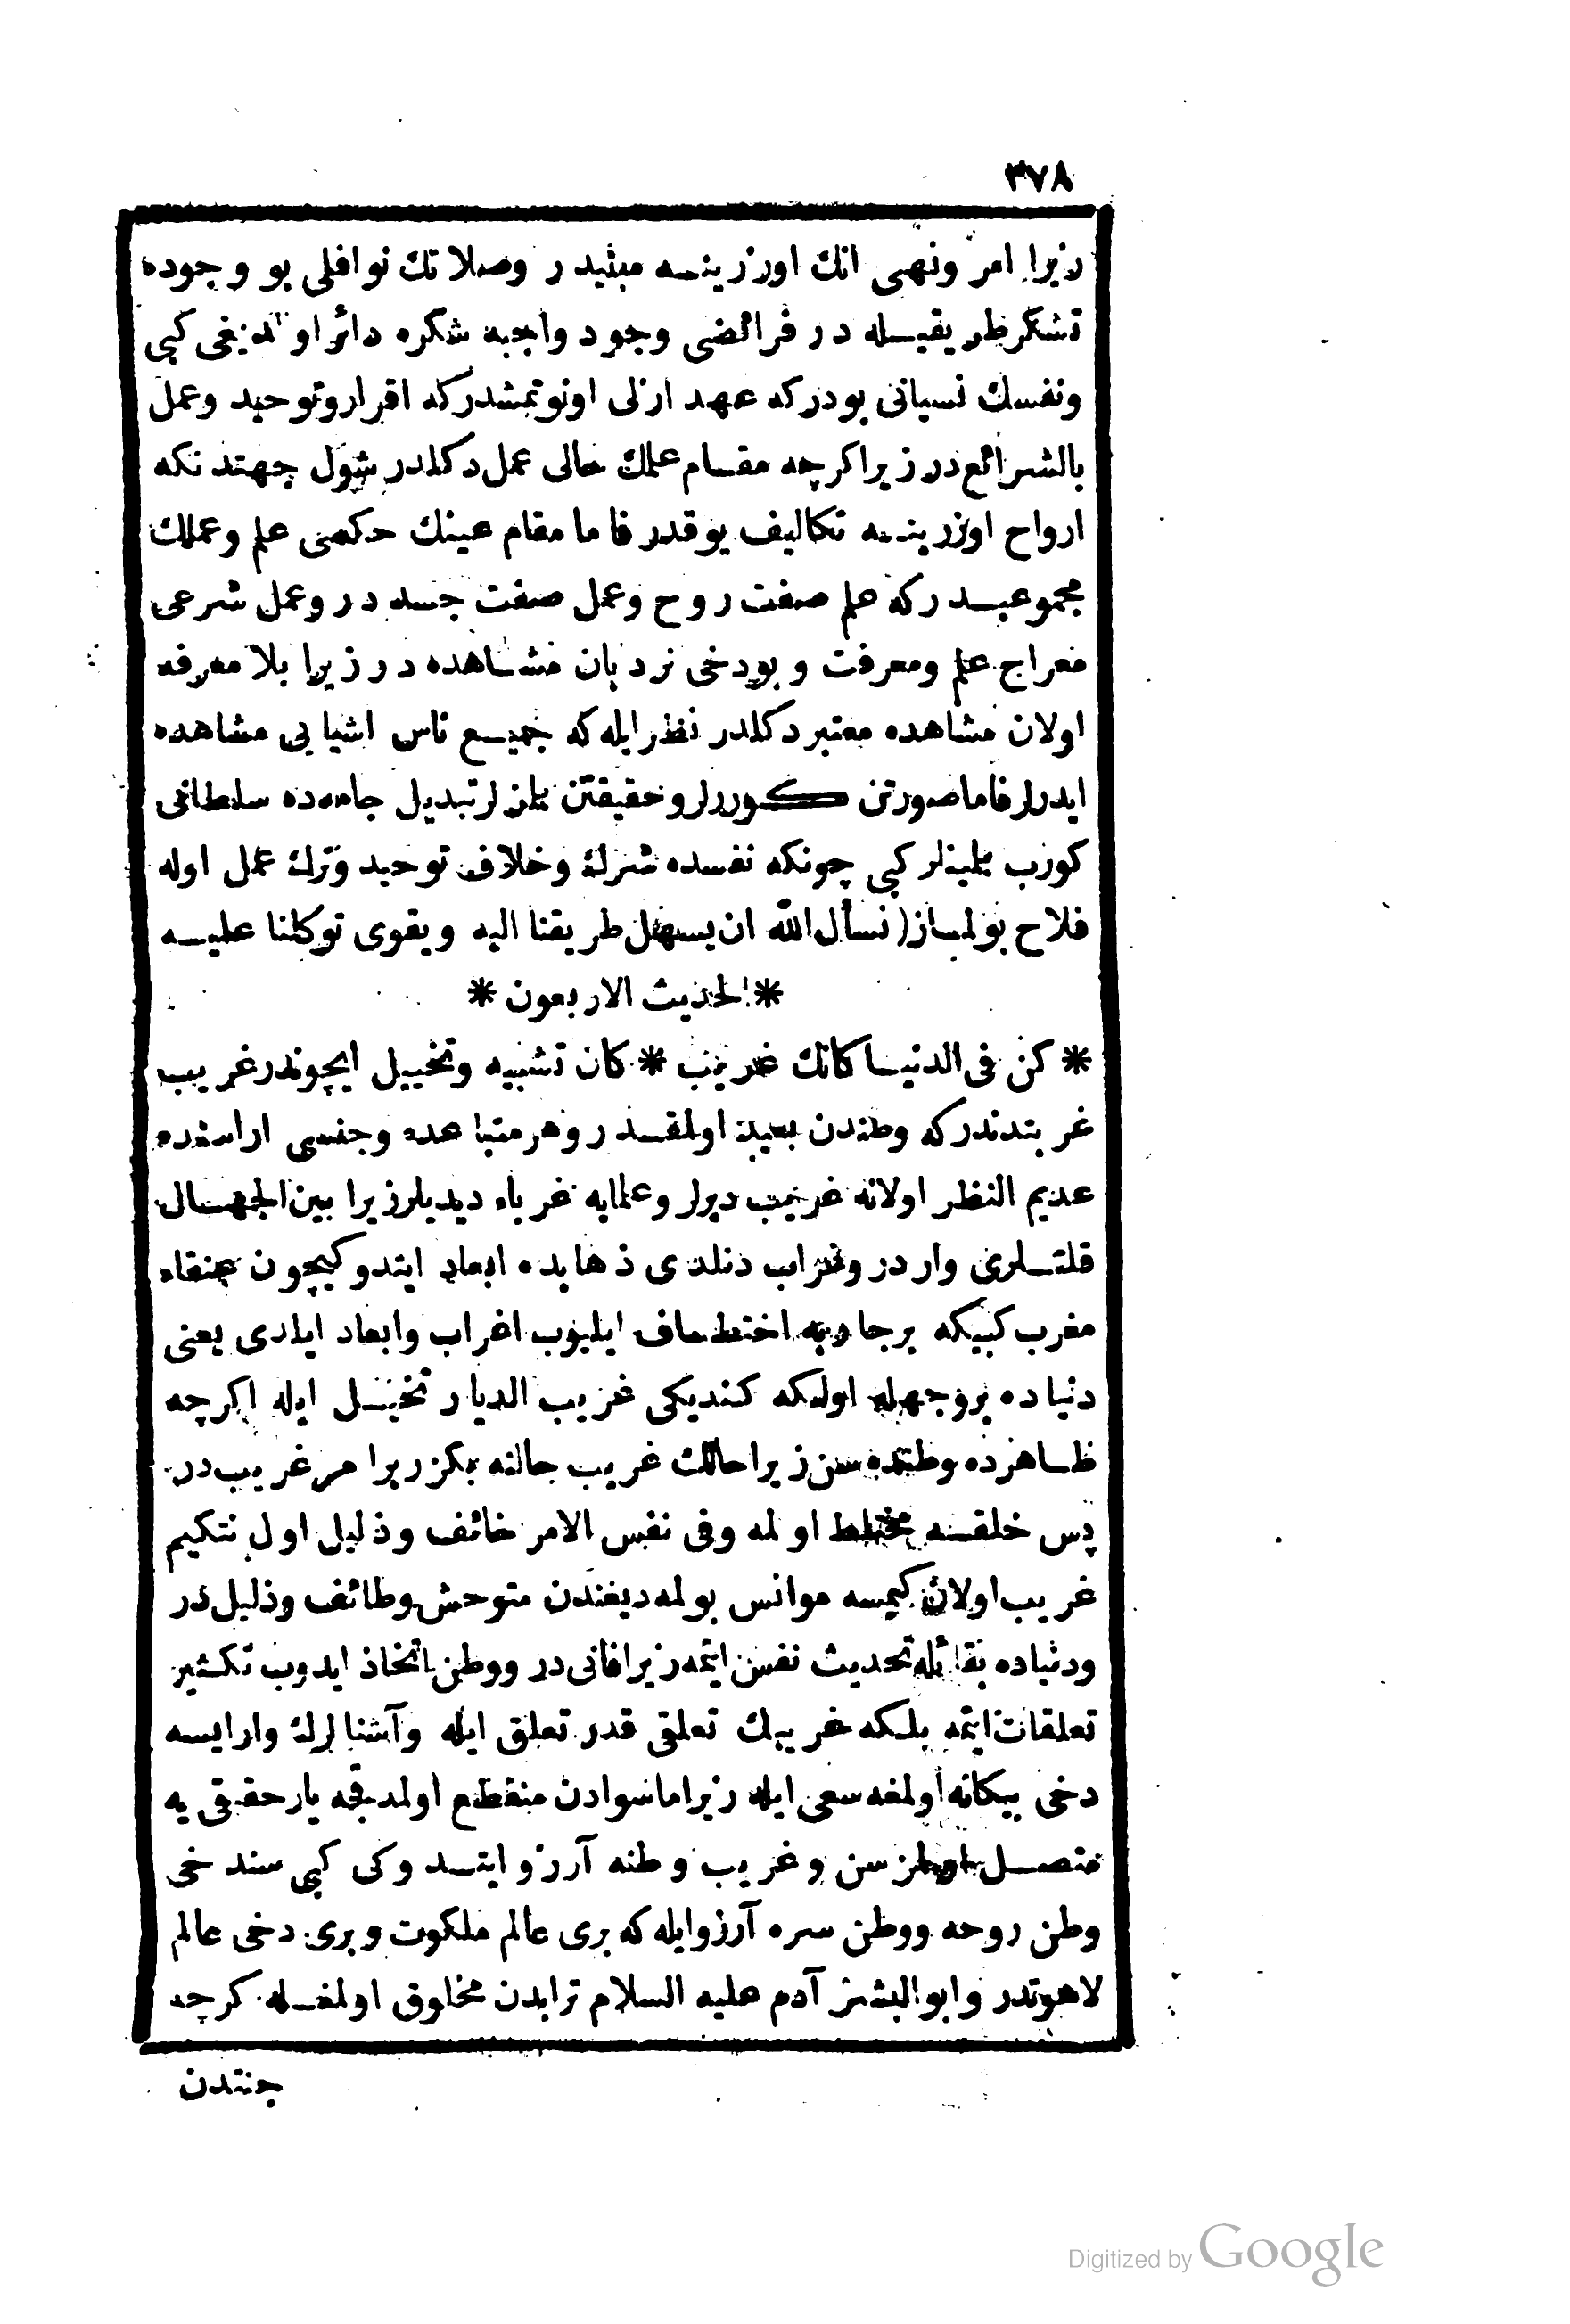 ٣٧٨
زيرا امر ونهى انك اوزرينه مبنيدر وصلاتك نوافلى بو وجوده
تشكر طريقيله در فرائضى وجود واجبه شكره دائر اولديغى كبى
ونفسك نسيانى بودركه عهد ازلى اونوتمشدركه اقرار وتوحيد وعمل
بالشرائع در زيرا كرچه مقام علمك حالى عمل دكلدر شول جهتدنكه
ارواح اوزرينه تكاليف يوقدر فاما مقام عينك حكمى علم وعملك
مجموعيدركه علم صفت روح وعمل صفت جسددر وعمل شرعى
معراج علم ومعرفت وبودخى نردبان مشاهده در زيرا بلا معرفه
اولان مشاهده معتبر دكلدر نظر ايله كه جميع ناس اشيايى مشاهده
ايدرلر فاما صورتن كوررلر وحقيقتن بلزلر تبديل جامه ده سلطانى
كورب بلينلر كبى چونكه نفسده شرك وخلاف توحيد وترك عمل اوله
فلاح بولماز (نسأل الله ان يسهل طريقنا اليه ويقوى توكلنا عليه
* الحديث الاربعون *
* كن فى الدنيا كانك غريب * كان تشبيه وتخييل ايچوندر غريب
غربتدندركه وطندن بعيد اولمقدر وهر متباعده وجنسى اراسنده
عديم النظر اولانه غريب ديرلر وعلمايه غرباء ديديلر زيرا بين الجهال
قلتلرى واردر وغراب دنلدى ذهابده ابعاد ايتدوكيچون عنقاء
مغرب كبيكه برجاريه اختطاف ايليوب اغراب وابعاد ايلدى يعنى
دنياده بروجهله اولكه كنديكى غريب الديار تخيل ايله اكرچه
ظاهرده وطنده سن زيرا حالك غريب حالنه بكزر زيرا هر غريب در
پس خلقه مختلط اولمه وفى نفس الامر خائف وذليل اول نتكيم
غريب اولان كيمسه موانس بولمه ديغندن متوحش وخائف وذليل در
ودنياده بقائله تحديث نفس ايتمه زيرا فانى در ووطن اتخاذ ايدوب تكثير
تعلقات ايتمه بلكه غريبك تعلقى قدر تعلق ايله وآشنالرك وار ايسه
دخى بيكانه اولمغه سعى ايله زيرا ماسوادن منقطع اولمدقجه يار حقيقى يه
متصل اولمز سن وغريب وطنه آرزو ايتدوكى كبى سندخى
وطن روحه ووطن سره آرزو ايله كه برى عالم ملكوت وبرى دخى عالم
لاهوتدر وابوالبشر آدم عليه السلام ترابدن مخلوق اولمغله كرچه
جنتدن
Digitized by Google